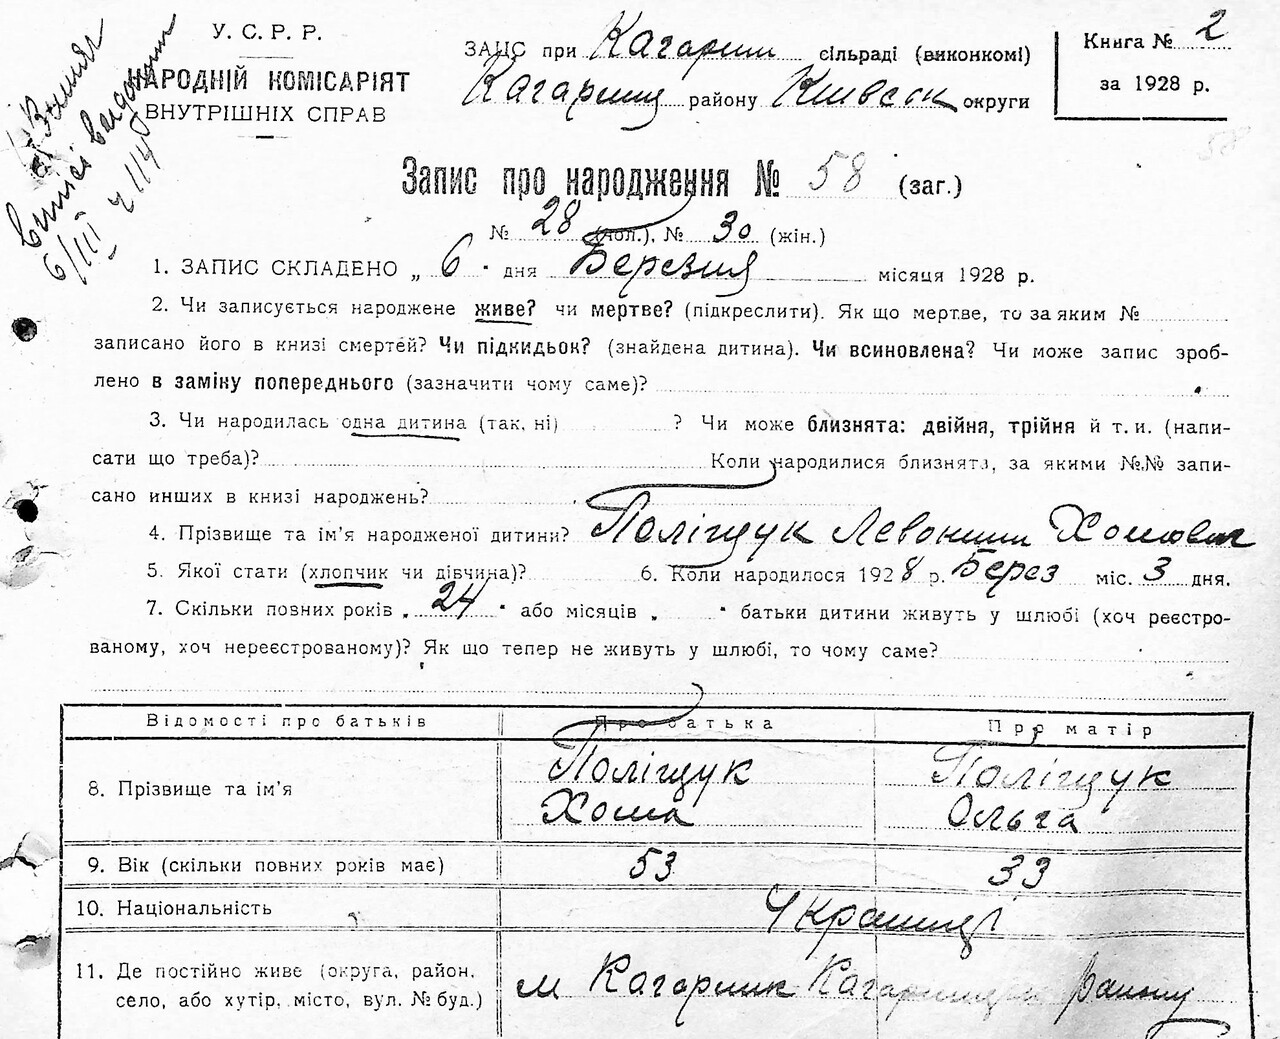 У. С. Р. Р.
НАРОДНІЙ КОМІСАРІЯТ
ВНУТРІШНІХ СПРАВ
6/III ч 114
ЗАГС при Кагарлиц сільраді (виконкомі)
Кагарлиц району Київськ округи
Книга № 2
за 1928 р.
58
Запис про народження № 58 (заг.)
№ 28 (чол.), № 30 (жін.)
1. ЗАПИС СКЛАДЕНО „ 6 " дня Березня місяця 1928 р.
2. Чи записується народжене живе? чи мертве? (підкреслити). Як що мертве, то за яким №
записано його в книзі смертей? Чи підкидьок? (знайдена дитина). Чи всиновлена? Чи може запис зроб-
лено в заміку попереднього (зазначити чому саме)?
3. Чи народилась одна дитина (так, ні) ? Чи може близнята: двійня, трійня й т. и. (напи-
сати що треба)? Коли народилися близнята, за якими №№ запи-
сано инших в книзі народжень?
4. Прізвище та ім'я народженої дитини? Поліщук Левонтий Хомович
5. Якої стати (хлопчик чи дівчина)? 6. Коли народилося 1928 р. Берез міс. 3 дня.
7. Скільки повних років „ 24 " або місяців „ " батьки дитини живуть у шлюбі (хоч реєстро-
ваному, хоч нереєстрованому)? Як що тепер не живуть у шлюбі, то чому саме?
Відомості про батьків Про батька Про матір
8. Прізвище та ім'я Поліщук Хома Поліщук Ольга
9. Вік (скільки повних років має) 53 33
10. Національність Українці
11. Де постійно живе (округа, район,
село, або хутір, місто, вул. № буд.) м Кагарлик Кагарлицьк Району